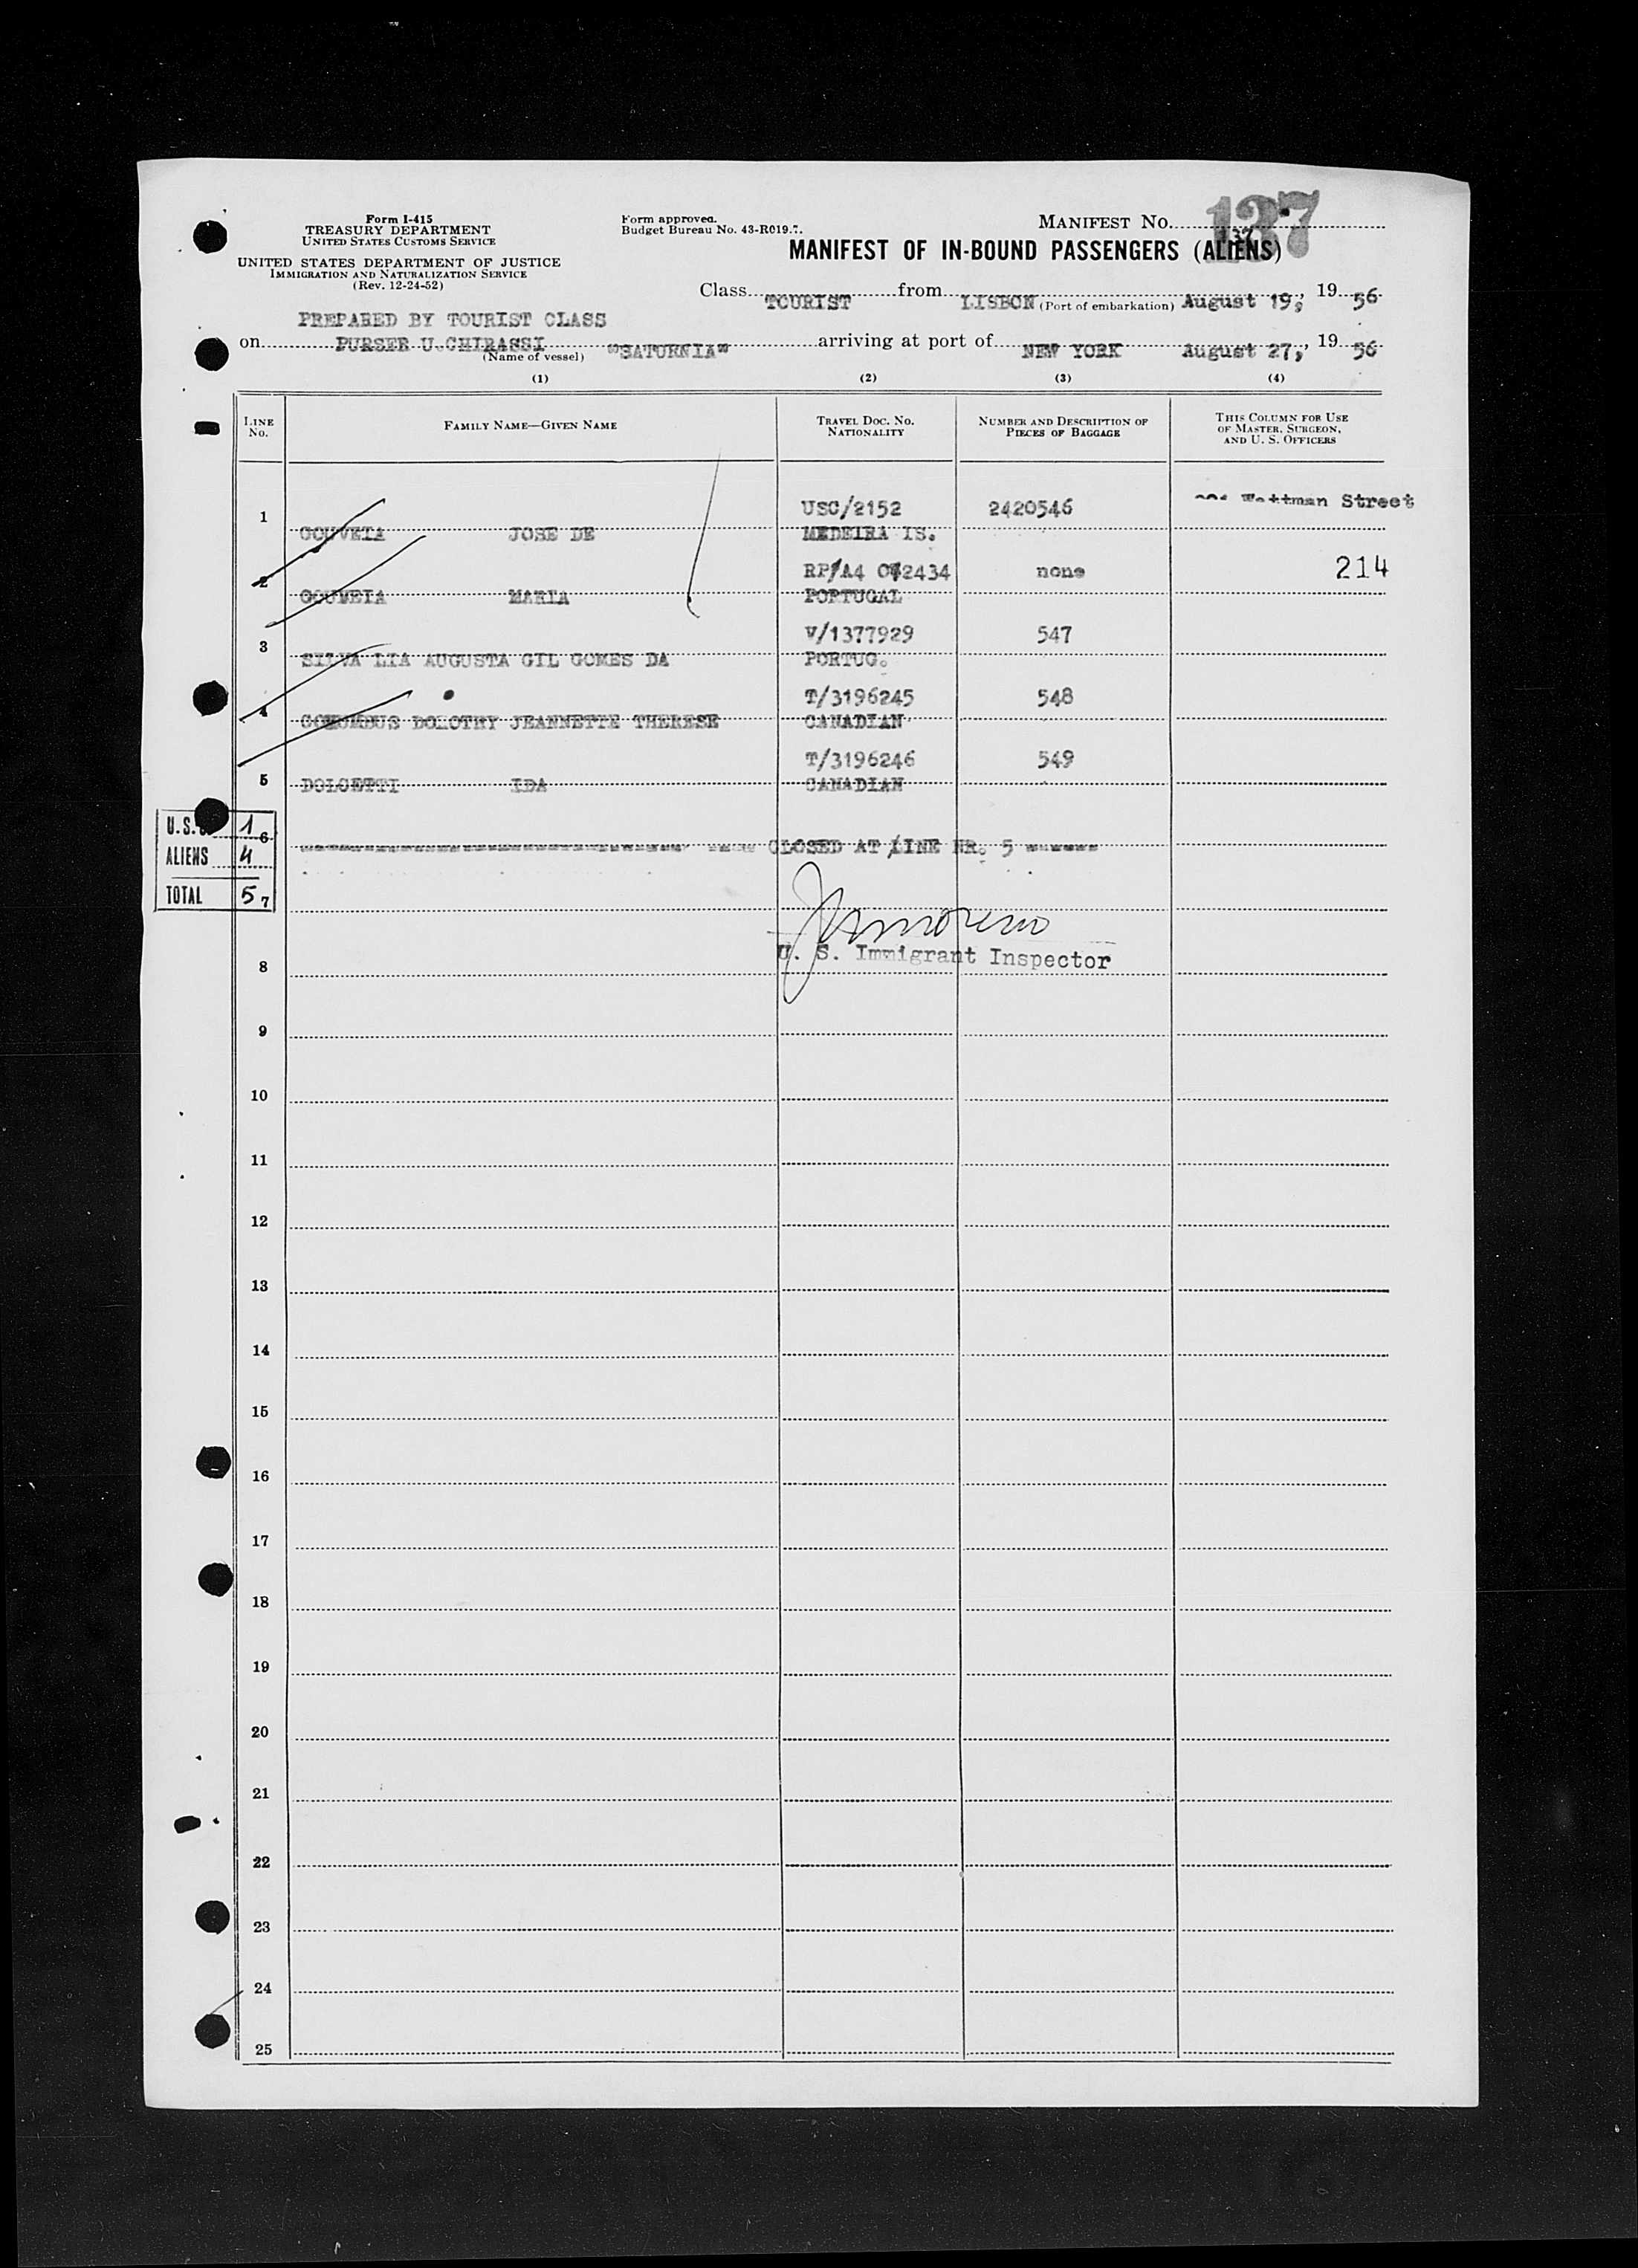 Form I-415
TREASURY DEPARTMENT
UNITED STATES CUSTOMS SERVICE
UNITED STATES DEPARTMENT OF JUSTICE
IMMIGRATION AND NATURALIZATION SERVICE
(Rev. 12-24-52)
Form approved.
Budget Bureau No. 43-R019.7.
MANIFEST No. 137
137
MANIFEST OF IN-BOUND PASSENGERS (ALIENS)
Class TOURIST from LISBON (Port of embarkation) August 19, , 19 56
PREPARED BY TOURIST CLASS
on PURSER U.CHIRASSI (Name of vessel) "SATURNIA" arriving at port of NEW YORK August 27, , 19 56
(1) (2) (3) (4)
LINE No. FAMILY NAME—GIVEN NAME TRAVEL DOC. No. NATIONALITY NUMBER AND DESCRIPTION OF PIECES OF BAGGAGE THIS COLUMN FOR USE OF MASTER, SURGEON, AND U. S. OFFICERS
USC/2152 2420546 Street
1 GOUVEIA JOSE DE MEDEIRA IS.
RP/A4 2434 none 214
2 GOUVEIA MARIA PORTUGAL
V/1377929 547
3 SILVA LIA AUGUSTA GIL GOMES DA PORTUG.
T/3196245 548
4 DOLOTHY JEANNETTE THERESE CANADIAN
T/3196246 549
5 DOLCETTI IDA CANADIAN
U.S. 1
6 CLOSED AT LINE NR. 5
ALIENS 4
TOTAL 5
7
U. S. Immigrant Inspector
8
9
10
11
12
13
14
15
16
17
18
19
20
21
22
23
24
25